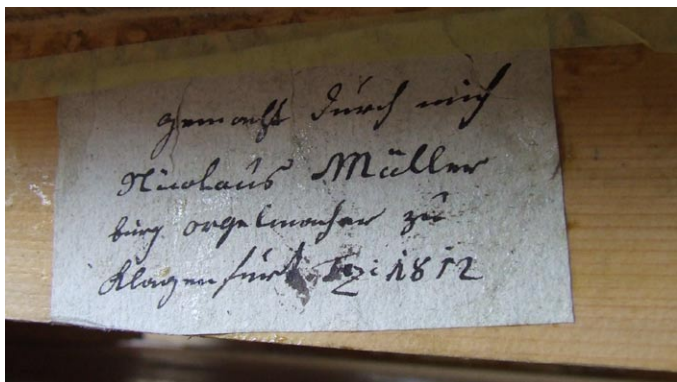 gemacht durch mich
Nicolaus Müller
burg orgelmacher zu
Klagenfurt 1812